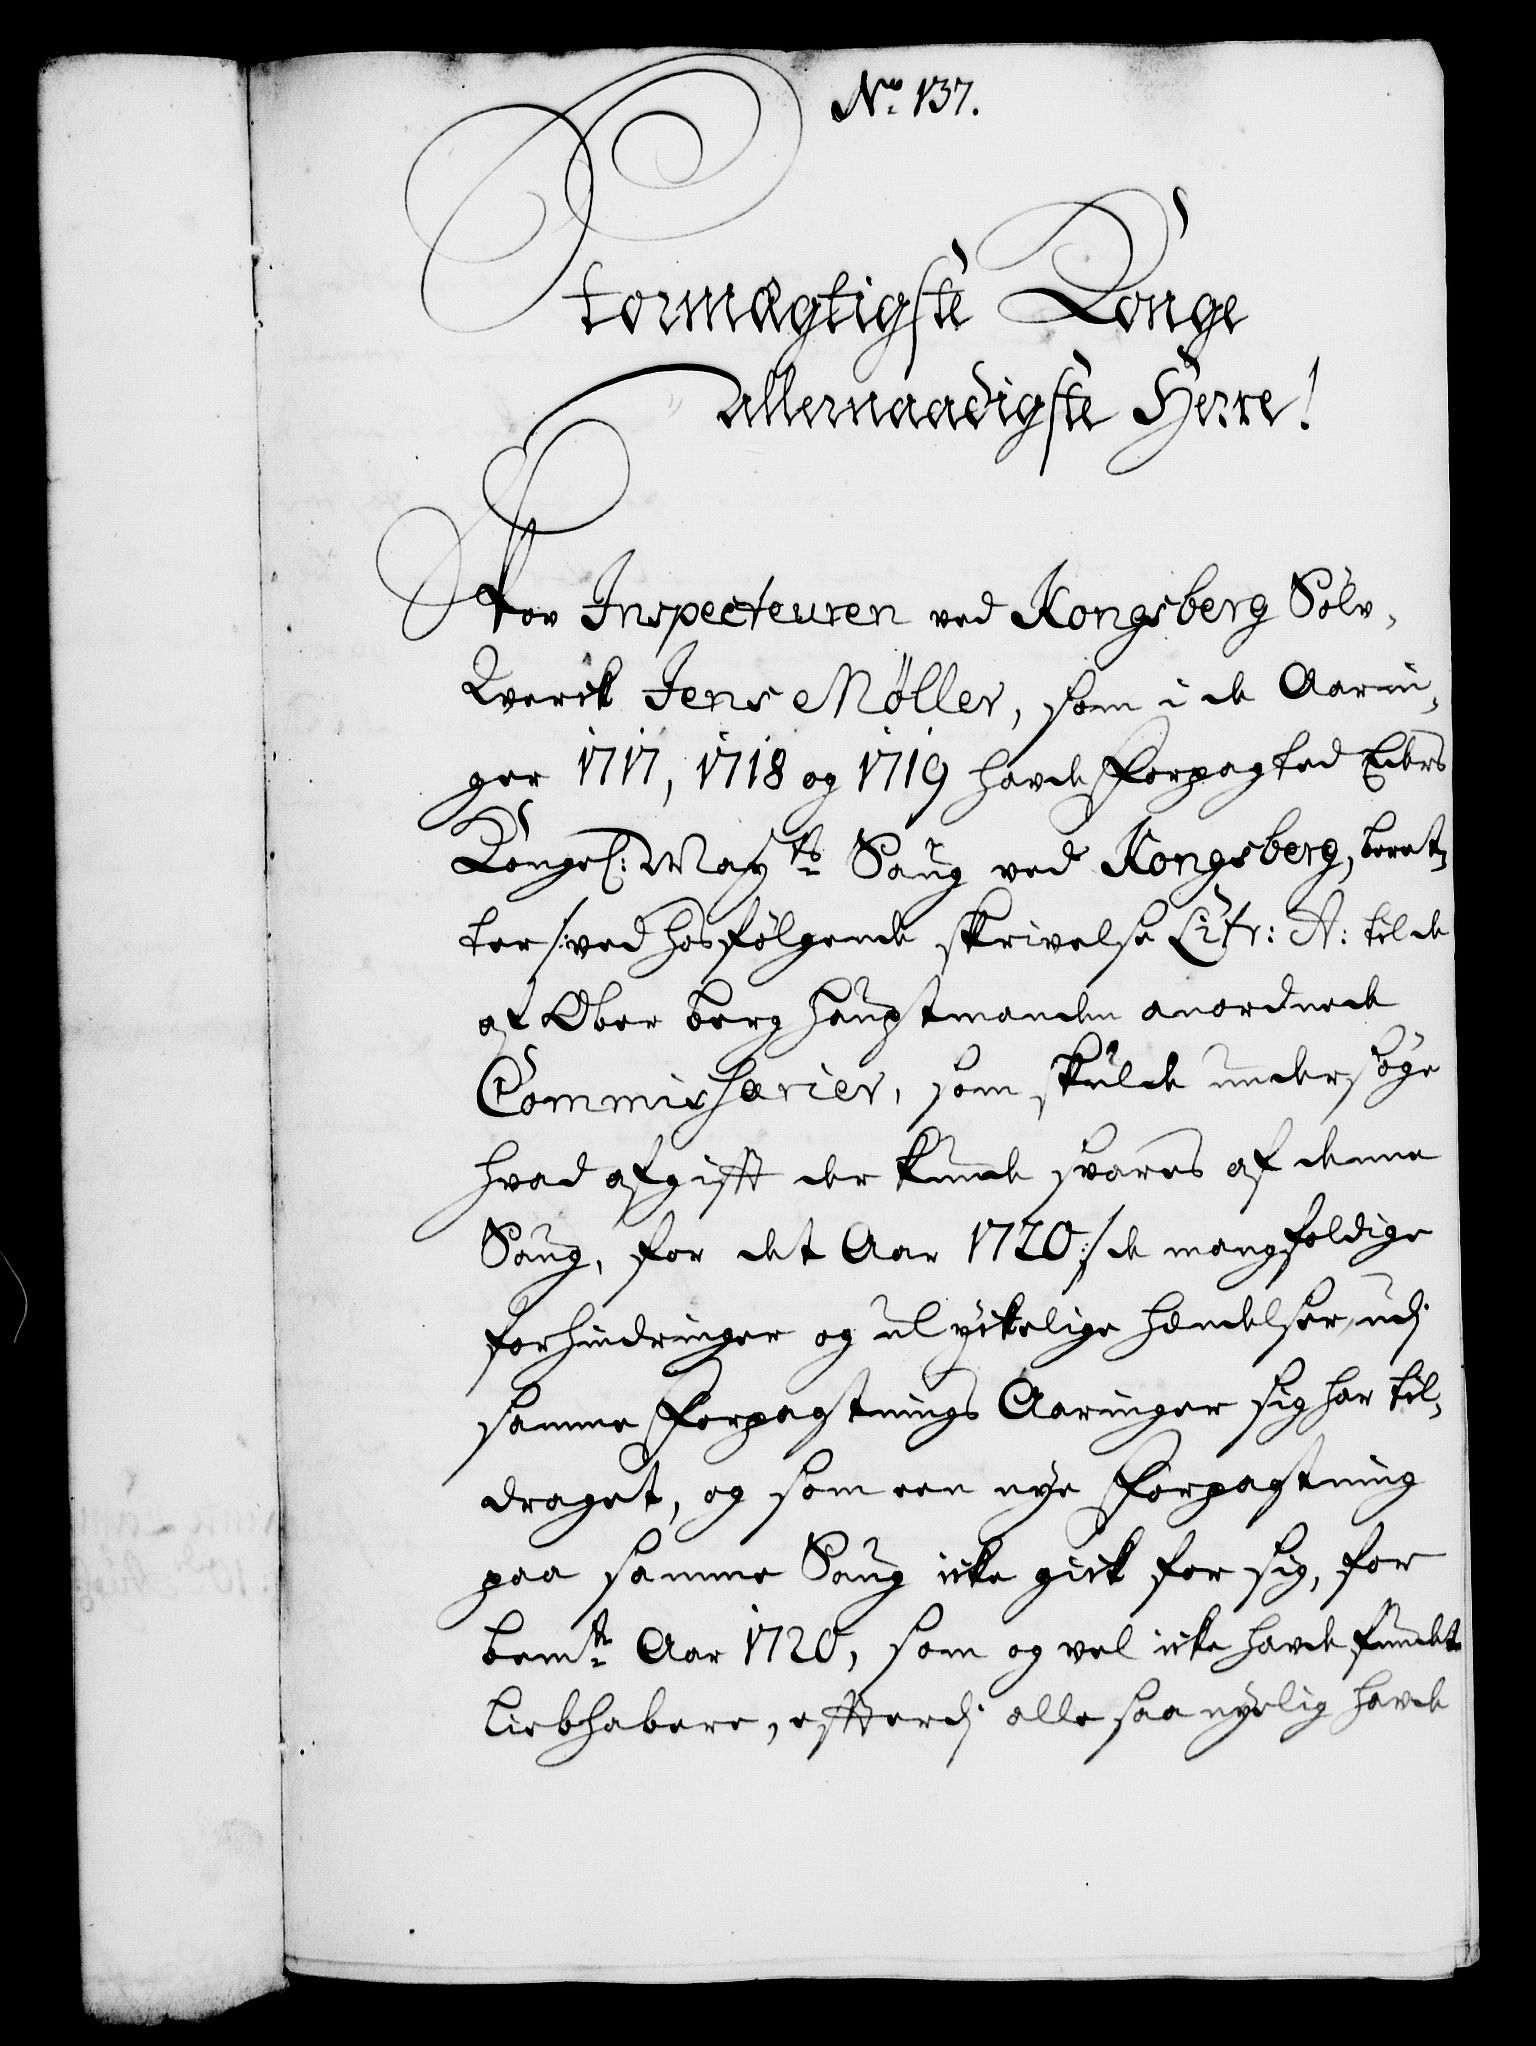 No. 137.
Stormægtigste Konge
allernaadigste Herre!
Stor Inspecteuren ved Kongsberg Sølv,
Værck Jens Møller, som i de Aarin,
ger 1717, 1718 og 1719 havde Forpagted Eders
Kongel: Mayts Saug ved Kongsberg, beret,
ter /: ved hosfølgende skrivelse Litr: A: til de
af Ober berg Hauptmanden anordnede
Commissarier, som skulde undersøge
hvad afgifft der kunde svares af denne
Saug, for det Aar 1720 :/ de mangfoldige
forhindringer og ulyckelige hendelser, udj
samme Forpagtnings Aaringer sig har til,
draget, og som een nye Forpagtning
paa samme Saug icke gick for sig, for
bemte Aar 1720, som og vel icke havde fundet
Liebhabere, effterdj alle saa nyelig havde